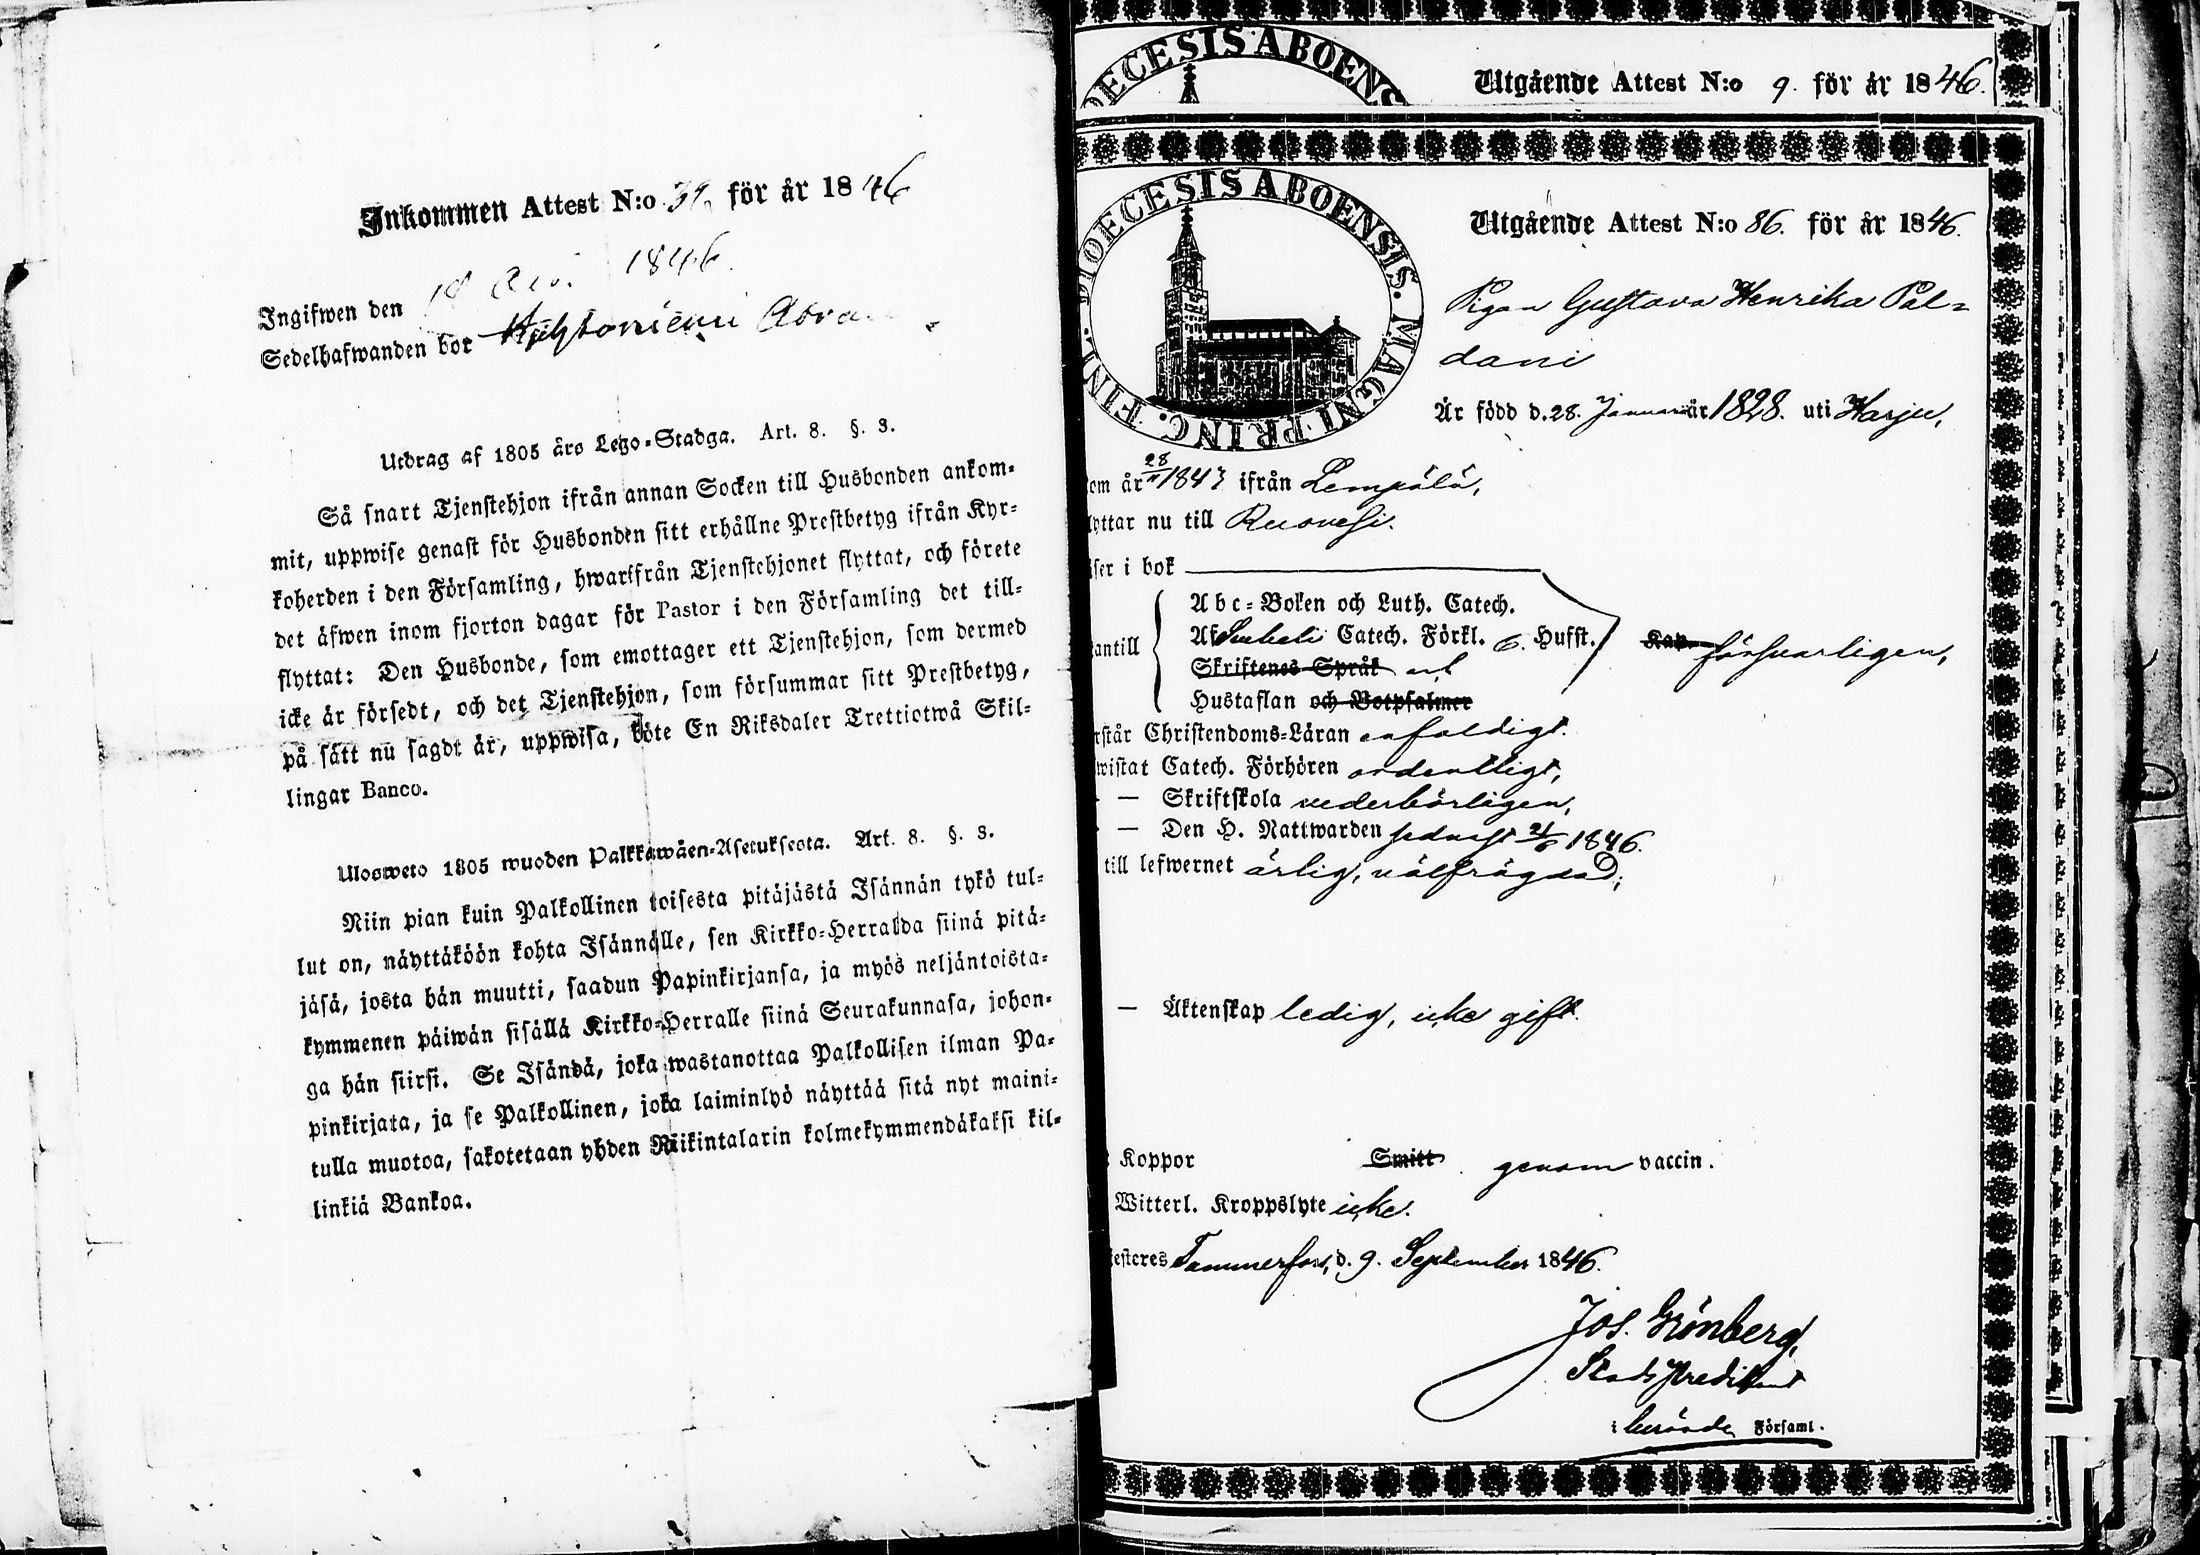 Inkommen Attest N:o 39. för år 1846
Ingifwen den 18 1846.
Sedelhafwanden bor
Utdrag af 1805 års Lego-Stadga. Art. 8. §. 3.
Så snart Tjenstehjon ifrån annan Socken till Husbonden ankom-
mit, uppwise genast för Husbonden sitt erhållne Prestbetyg ifrån Kyr-
koherden i den Församling, hwarifrån Tjenstehjonet flyttat, och förete
det äfwen inom fjorton dagar för Pastor i den Församling det till-
flyttat: Den Husbonde, som emottager ett Tjenstehjon, som dermed
icke är försedt, och det Tjenstehjon, som försummar sitt Prestbetyg,
på sätt nu sagdt är, uppwisa, böte En Riksdaler Trettiotwå Skil-
lingar Banco.
Ulosweto 1805 wuoden Palkkawäen-Asetuksesta. Art. 8. §. 3.
Niin pian kuin Palkollinen toisesta pitäjästä Isännän tykö tul-
lut on, näyttäköön kohta Isännälle, sen Kirkko-Herralda siinä pitä-
jäsä, josta hän muutti, saadun Papinkirjansa, ja myös neljäntoista-
kymmenen päiwän sisällä Kirkko-Herralle siinä Seurakunnasa, johon-
ga hän siirsi. Se Isändä, joka wastanottaa Palkollisen ilman Pa-
pinkirjata, ja se Palkollinen, joka laiminlyö näyttää sitä nyt maini-
tulla muotoa, sakotetaan yhden Riikintalarin kolmekymmendäkaksi kil-
linkiä Bankoa.
DIOECESIS ABOENS
Utgående Attest N:o 9. för år 1846.
DIOECESIS ABOENSIS. MAGNI PRINC. FINL.
Utgående Attest N:o 86. för år 1846.
Pigan Gustava Henrika Pal-
dani
Är född d. 28. Januari år 1828. uti Harju,
om år 28/11 1843 ifrån Lempälä,
lyttar nu till Ruovesi.
ser i bok
Abc-Boken och Luth. Catech.
antill Af Svebeli Catech. Förkl. 6. Hufst. Kap. försvarligen,
Skriftenes Språk
Hustaflan och Botpsalmer
rstår Christendoms-Läran enfaldigt.
wistat Catech. Förhören ordentligt,
— Skriftskola vederbörligen,
— Den H. Nattwarden sednast 21/6 1846.
till lefwernet ärlig, välfrägdad;
— Äktenskap ledig, icke gift.
Koppor Smitt. genom vaccin.
Witterl. Kroppslyte icke.
esteres Tammerfors, d. 9. September 1846.
Jos. Grönberg,
Stadspredikant
i berörde Församl.